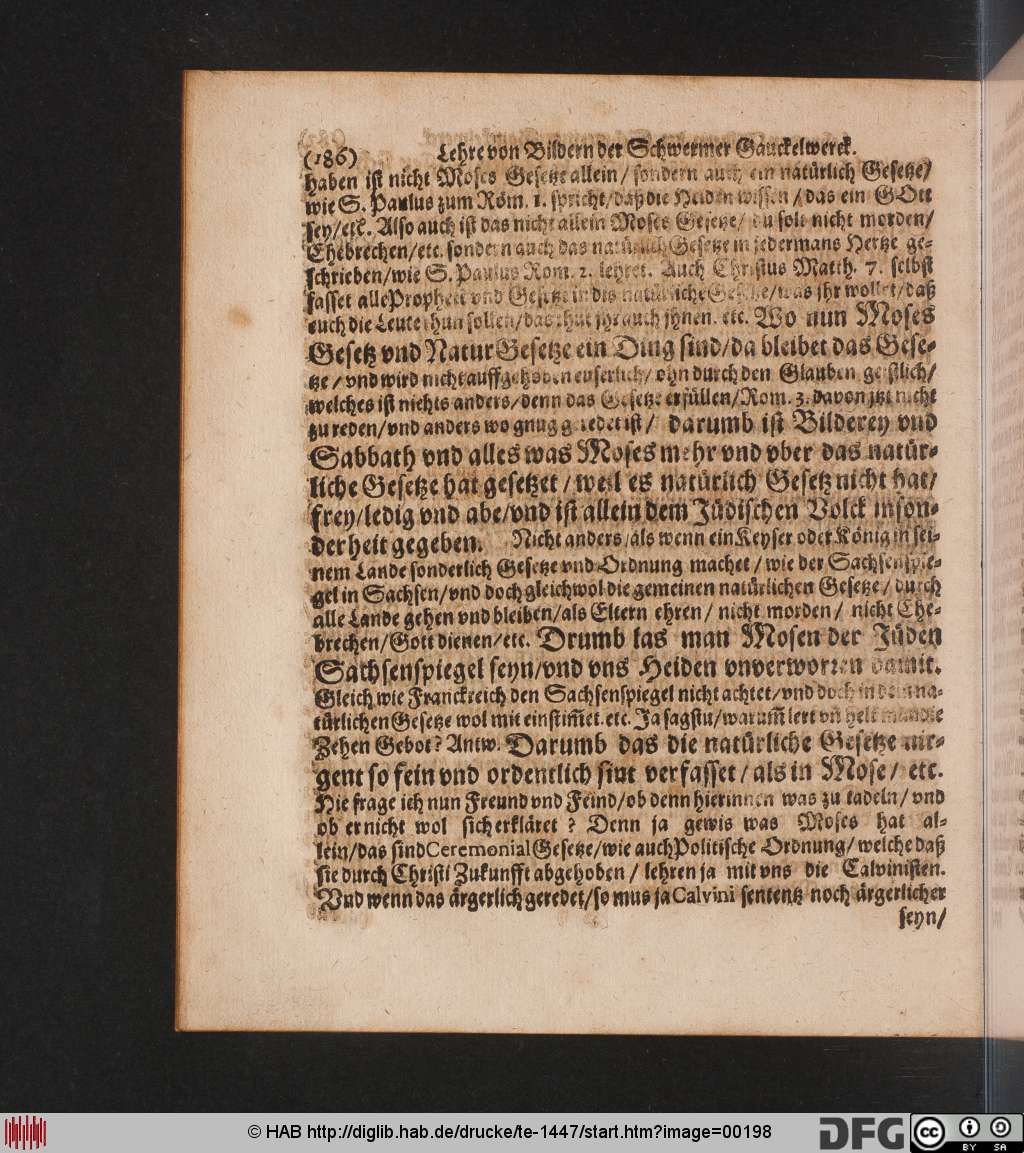 (186) Lehre von Bildern der Schwermer Gauckelwerck.
haben ist nicht Moses Gesetze allein / sondern auch ein natürlich Gesetze/
wie S. Paulus zum Röm. 1. spricht/daß die Heiden wissen / das ein GOtt
sey/etc. Also auch ist das nicht allein Moses Gesetze/ du solt nicht morden/
Ehebrechen/etc. sondern auch das natürlich Gesetze in jedermans Hertze ge-
schrieben/wie S. Paulus Rom. 2. lehret. Auch Christus Matth. 7. selbst
fasset alle Prophett vnd Gesetze in dis natürliche Gesetze/was jhr wollet/daß
euch die Leute thun sollen/das thut jhr auch jhnen. etc. Wo nun Moses
Gesetz vnd Natur Gesetze ein Ding sind/da bleibet das Gese-
tze / vnd wird nicht auffgehoben euserlich/ ohn durch den Glauben geistlich/
welches ist nichts anders/denn das Gesetze erfüllen/Rom. 3. davon jtzt nicht
zu reden/vnd anders wo gnug geredet ist/ darumb ist Bilderey vnd
Sabbath vnd alles was Moses mehr vnd vber das natür-
liche Gesetze hat gesetzet / weil es natürlich Gesetz nicht hat/
frey/ledig vnd abe/vnd ist allein dem Jüdischen Volck inson-
derheit gegeben. Nicht anders/als wenn ein Keyser oder König in sei-
nem Lande sonderlich Gesetze vnd Ordnung machet / wie der Sachsenspie-
gel in Sachsen/vnd doch gleichwol die gemeinen natürlichen Gesetze / durch
alle Lande gehen vnd bleiben/als Eltern ehren / nicht morden / nicht Ehe-
brechen/Gott dienen/etc. Drumb las man Mosen der Jüden
Sachsenspiegel seyn/vnd vns Heiden vnverworren damit.
Gleich wie Franckreich den Sachsenspiegel nicht achtet/vnd doch in dem na-
türlichen Gesetze wol mit einstim̃et. etc. Ja sagstu/warum̃ lert vñ helt man die
Zehen Gebot? Antw. Darumb das die natürliche Gesetze nir-
gent so fein vnd ordentlich sint verfasset / als in Mose/ etc.
Hie frage ich nun Freund vnd Feind/ob denn hierinnen was zu tadeln/ vnd
ob er nicht wol sich erkläret ? Denn ja gewis was Moses hat al-
lein/das sind Ceremonial Gesetze/wie auch Politische Ordnung/ welche daß
sie durch Christi Zukunfft abgehoben / lehren ja mit vns die Calvinisten.
Vnd wenn das ärgerlich geredet/so mus ja Calvini sententz noch ärgerlicher
seyn/
© HAB http://diglib.hab.de/drucke/te-1447/start.htm?image=00198
DFG
cc BY SA